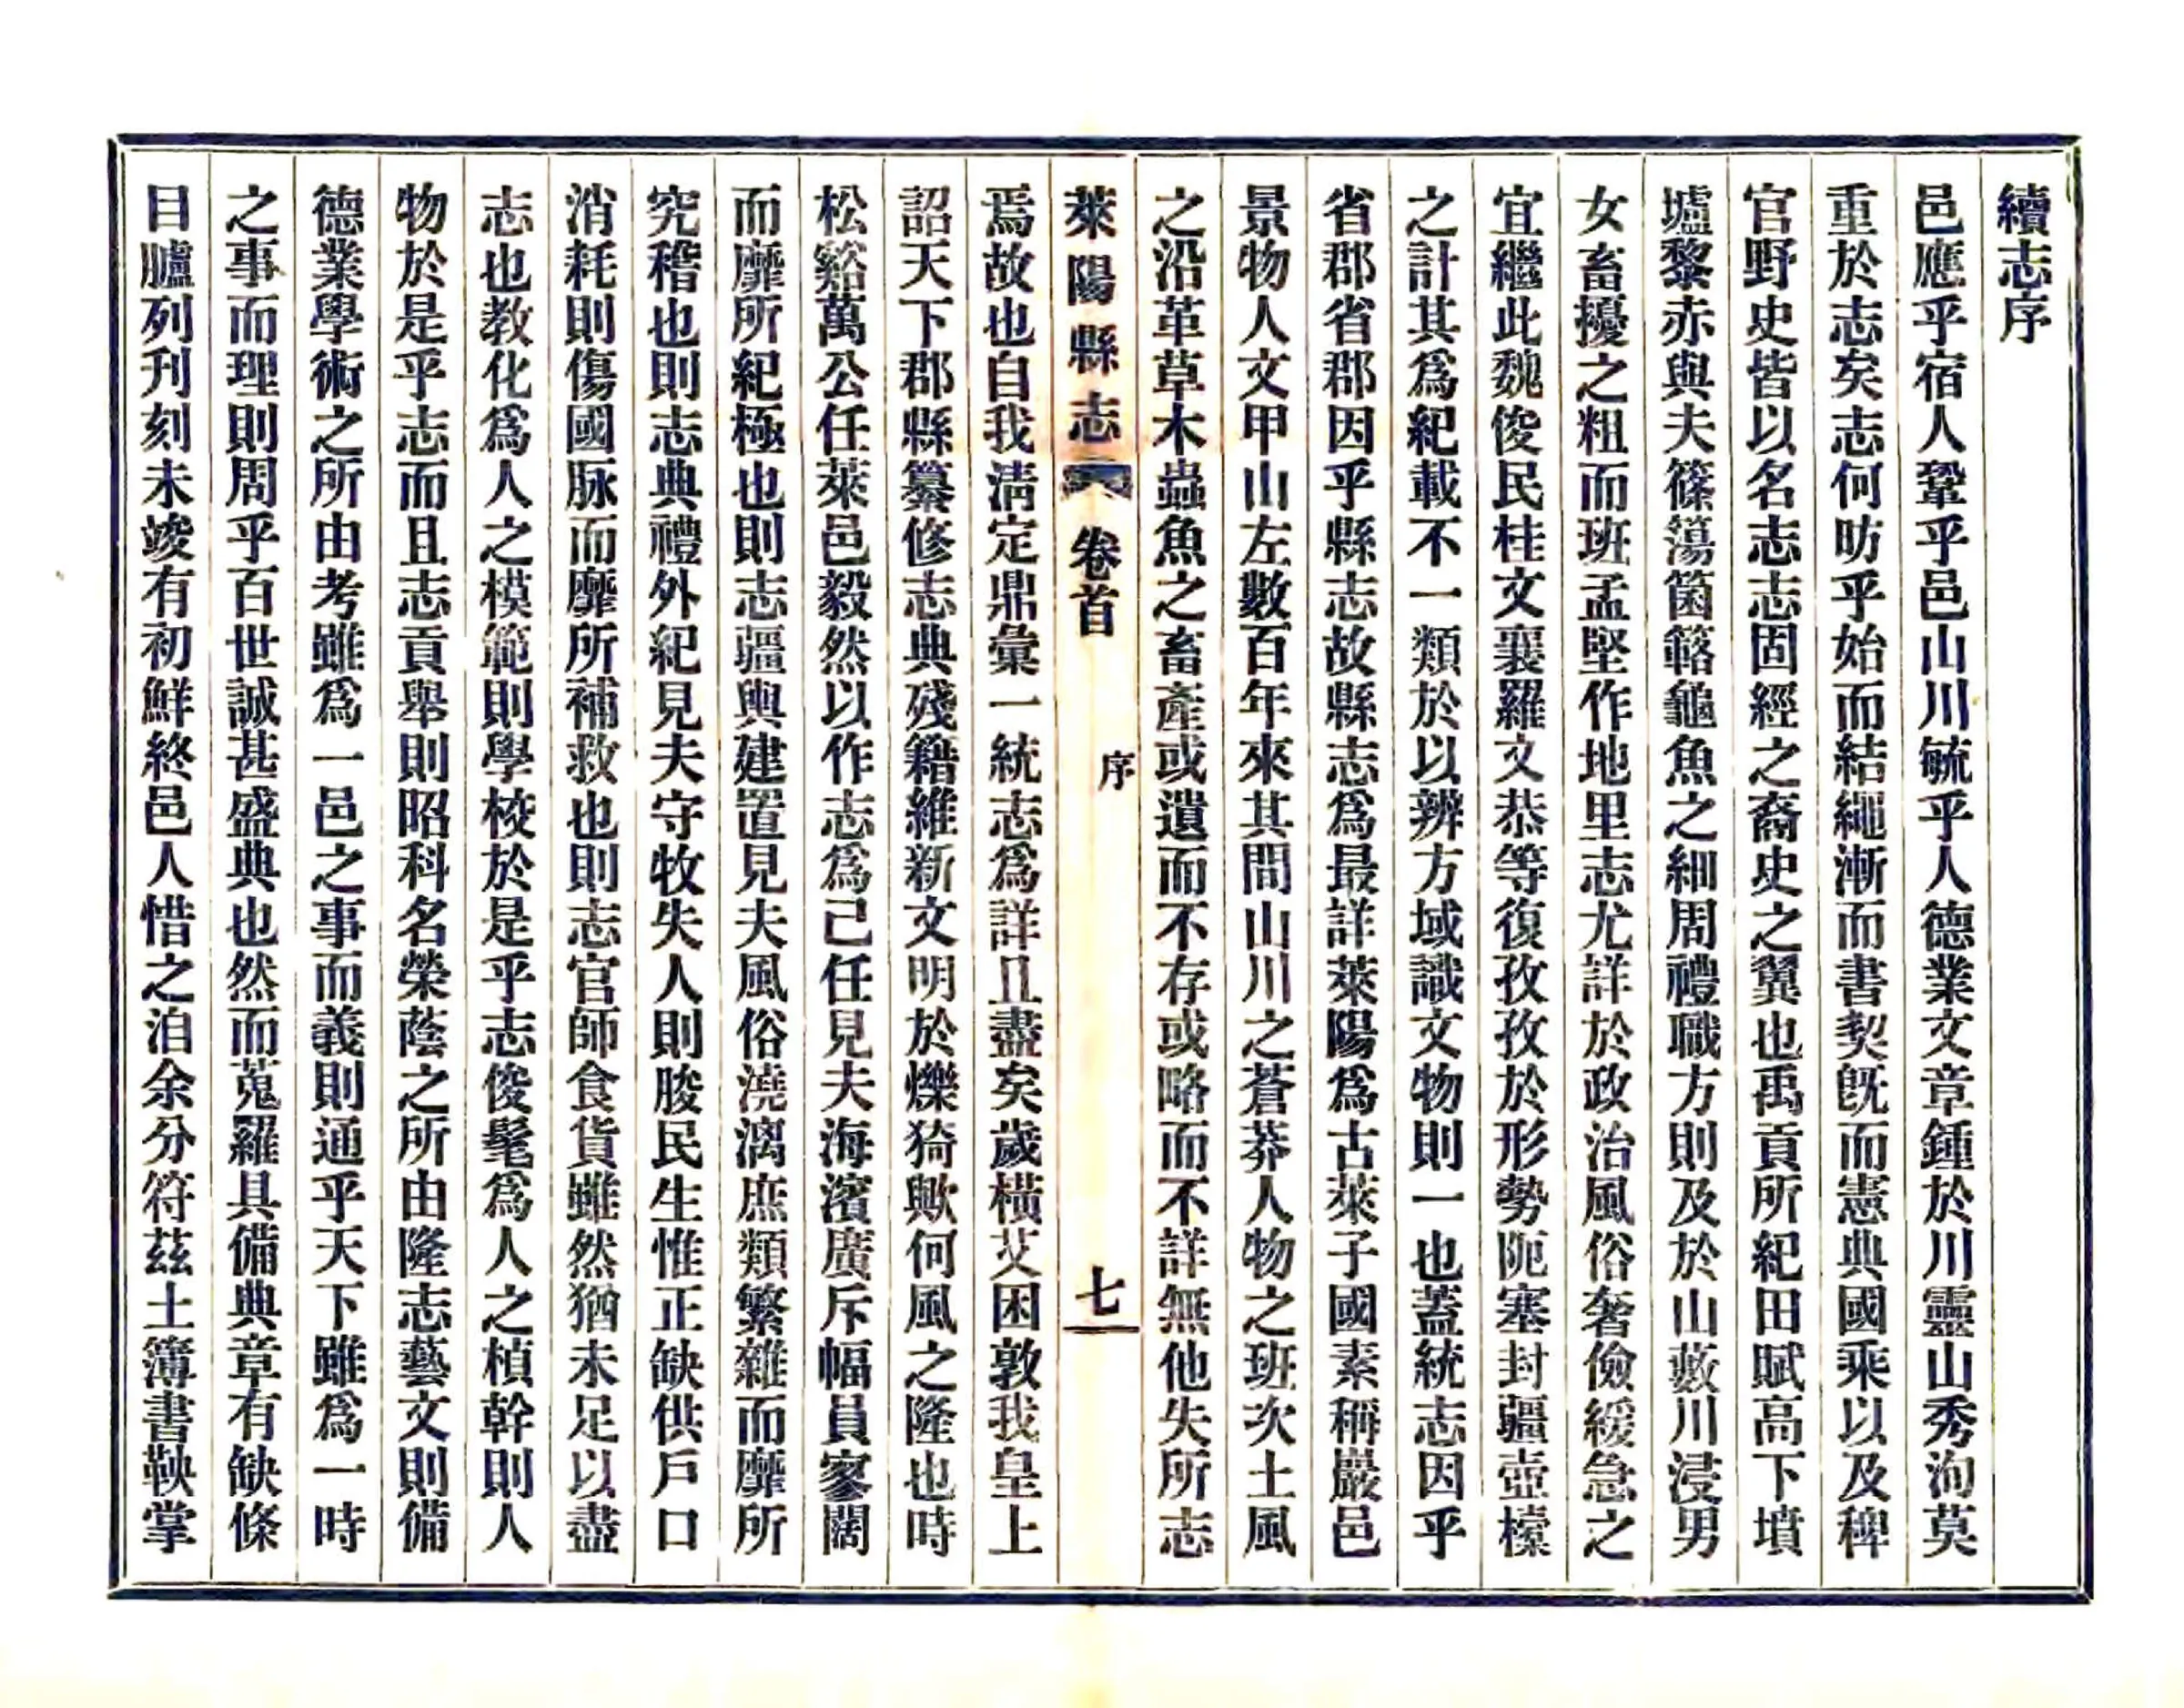 續志序
邑應乎宿人鞏乎邑山川毓乎人德業文章鍾於川靈山秀洵莫
重於志矣志何昉乎始而結繩漸而書契旣而憲典國乘以及稗
官野史皆以名志志固經之裔史之翼也禹貢所紀田賦高下墳
壚黎赤與夫篠簜箘簵龜魚之細周禮職方則及於山藪川浸男
女畜擾之粗而班孟堅作地里志尤詳於政治風俗奢儉緩急之
宜繼此魏俊民桂文襄羅文恭等復孜孜於形勢阨塞封疆壺櫜
之計其爲紀載不一類於以辨方域識文物則一也蓋統志因乎
省郡省郡因乎縣志故縣志爲最詳萊陽爲古萊子國素稱巖邑
景物人文甲山左數百年來其間山川之蒼莽人物之班次土風
之沿革草木蟲魚之畜產或遺而不存或略而不詳無他失所志
萊陽縣志 卷首 序 七
焉故也自我淸定鼎彙一統志爲詳且盡矣歲橫艾困敦我皇上
詔天下郡縣纂修志典殘籍維新文明於爍猗歟何風之隆也時
松谿萬公任萊邑毅然以作志爲己任見夫海濱廣斥幅員寥闊
而靡所紀極也則志疆輿建置見夫風俗澆漓庶類繁雜而靡所
究稽也則志典禮外紀見夫守牧失人則朘民生惟正缺供戶口
消耗則傷國脉而靡所補救也則志官師食貨雖然猶未足以盡
志也教化爲人之模範則學校於是乎志俊髦爲人之楨幹則人
物於是乎志而且志貢舉則昭科名榮蔭之所由隆志藝文則備
德業學術之所由考雖爲一邑之事而義則通乎天下雖爲一時
之事而理則周乎百世誠甚盛典也然而蒐羅具備典章有缺條
目臚列刊刻未竣有初鮮終邑人惜之洎余分符茲土簿書鞅掌